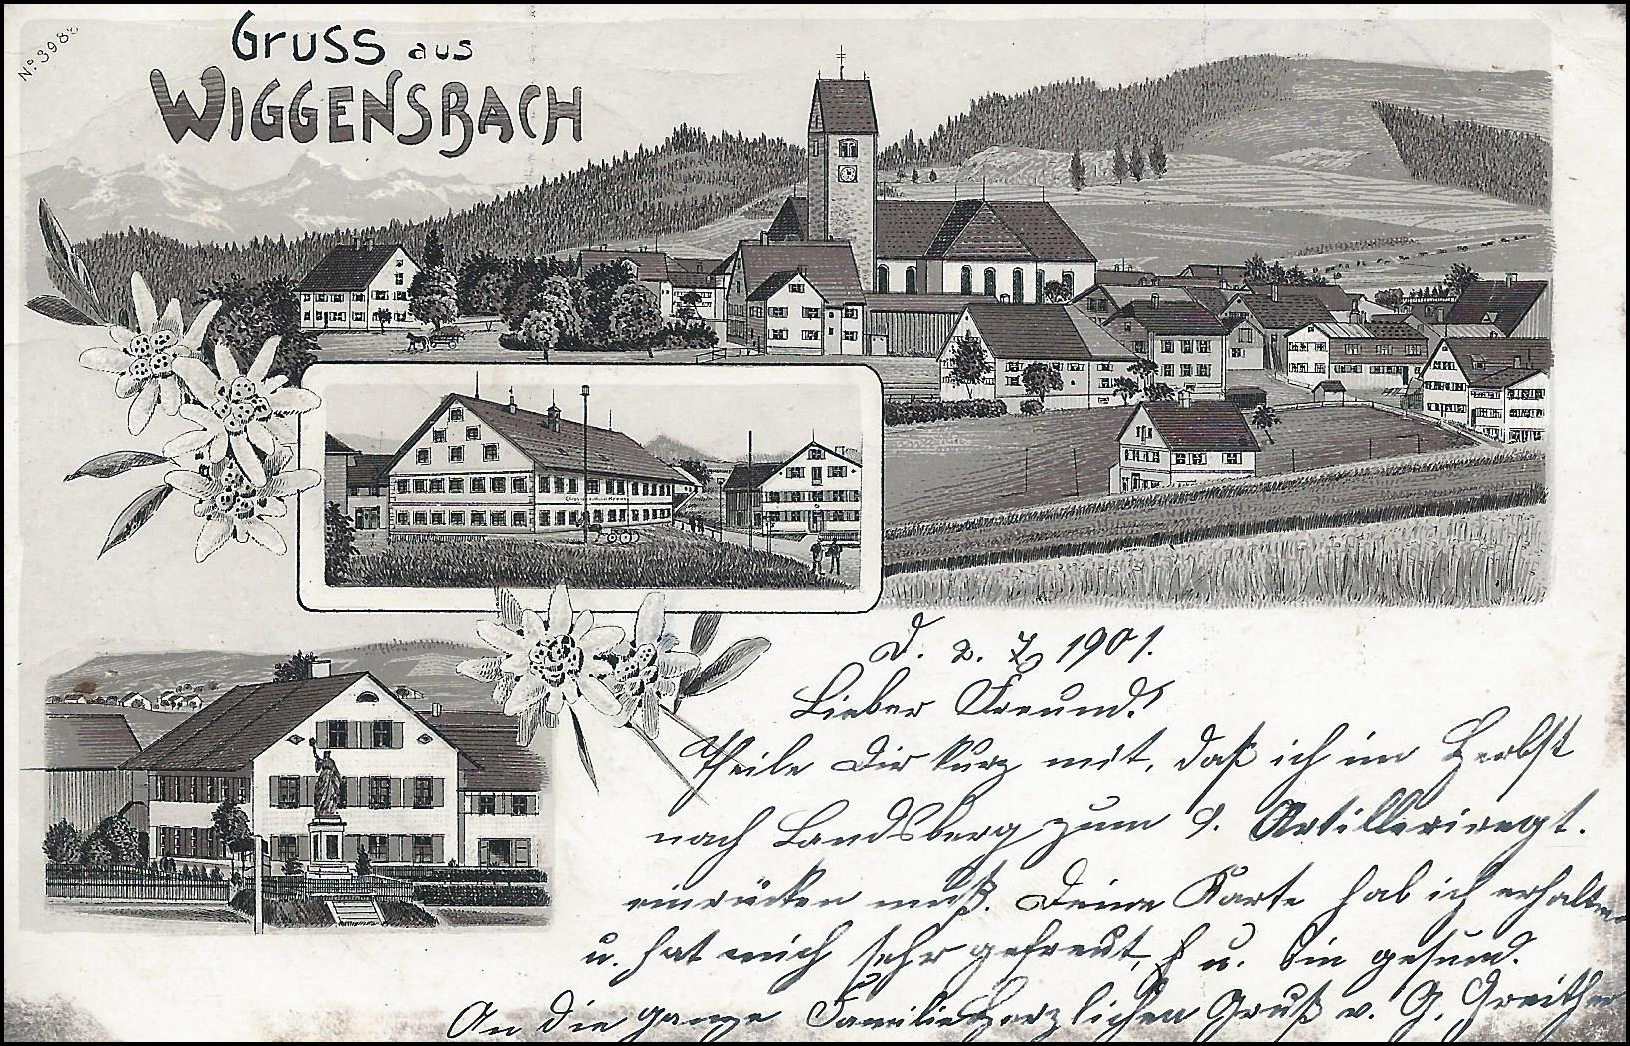 No. 398
Gruss aus
WIGGENSBACH
D. 2. 7. 1901.
Lieber Freund!
Theile Dir kurz mit, daß ich im Herbst
nach Landsberg zum 9. Artilleriregt.
einrücken muß. Deine Karte hab ich erhalten
u. hat mich sehr gefreut, u. bin gesund.
An die ganze Familie Herzlichen Gruß v. G. Greither